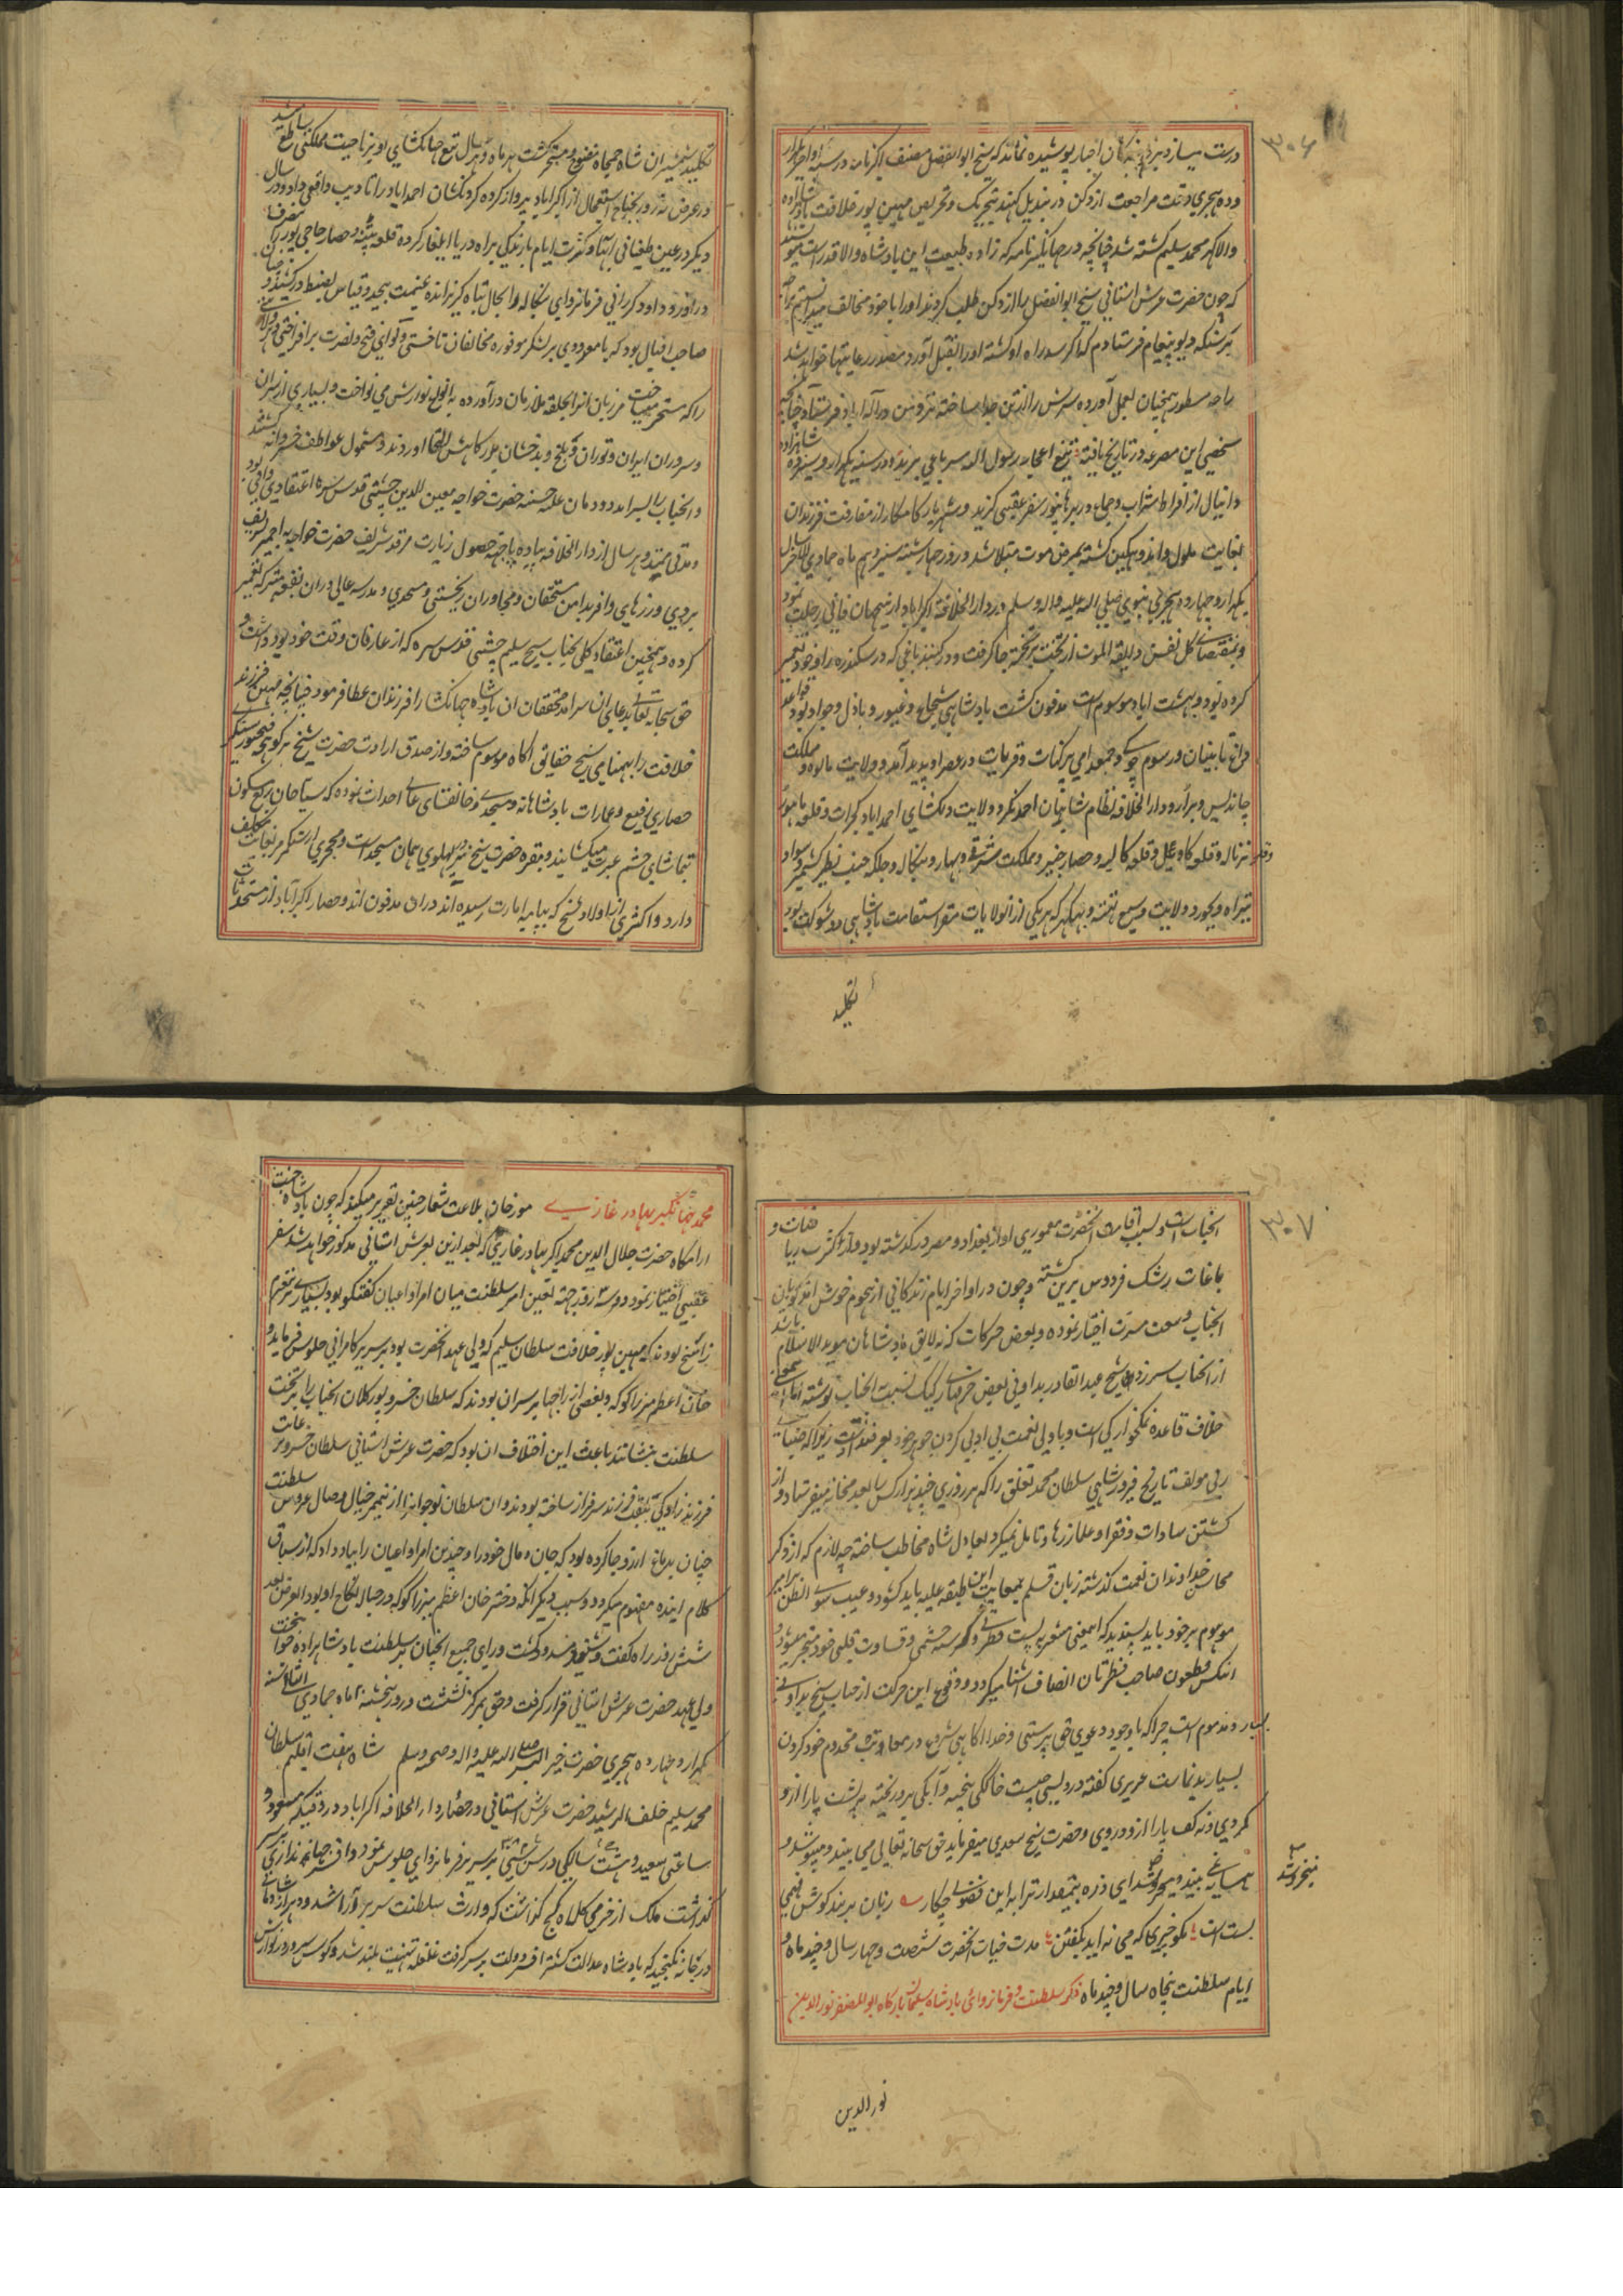 ۳۰۶
درست میسازد بر خبر اخبار پوشیده نماند که شیخ ابوالفضل مصنف اکبرنامه در سنه او اخر هزار
و ده هجری وقت مراجعت از دکن در بندیل کهند بتحریک و تحریص مهین پور خلافت بادشاهزاده
والا گهر محمد سلیم کشته شد چنانچه در جهانگیر نامه که زاده طبیعت این بادشاه والا قدر است مینویسند
که چون حضرت عرش استانی شیخ ابوالفضل را از دکن طلب کردند او را با خود مخالف میدانستم براجه
نرسنگه دیو پیغام فرستادم که اگر سد راه او گشته او را بقتل آورد مصدر رعایتها خواهد شد
راجه مسطور همچنان بعمل آورده سرش را از تن جدا ساخته نزد من در اله اباد فرستاد چنانچه
شخصی این مصرعه در تاریخ یافته تیغ اعجاز رسول الله سر باغی برید و در سنه یکهزار و سیزده شاهزاده
دانیال از افراط شراب و جماع در برهانپور سفر عقبی گزید و شهریار کامکار از مفارقت فرزندان
بغایت ملول و اندوهگین گشته بمرض موت مبتلا شد و روز چهارشنبه سیزدهم ماه جمادی الاخر سال
یکهزار و چهارده هجری نبوی صلی الله علیه و اله و سلم در دار الخلافه اکبراباد ازین جهان فانی رحلت نمود
و بمقتضای کل نفس ذایقة الموت از تخت بر تخته جا گرفت و در گنبد باغی که در سکندره را و خود تعمیر
کرده بود و ببهشت اباد موسوم است مدفون گشت بادشاهی شجاع و غیور و باذل و جواد بود قواعد
داغ تابینان و رسوم چوکی و جمعدامی پرگنات و قریات در عصر او پدید آمد و ولایت مالوه و مملکت
چاندیس و برار و دار الخلافه نظام شاهیان احمد نگر و ولایت دلکشای احمداباد گجرات و قلعه ماهور
و قلعه نرناله و قلعه گاویل و قلعه کالپه و حصار جنیر و مملکت شرقی و بهار و بنگاله و جلگه جنت نظیر کشمیر و سواد
تیراه و بجور و ولایت وسیع تهته و بهکر که هر یکی از انولایات مقر استقامت بادشاهی ذو شوکت بود
بکلید
بکلید شمشیر ان شاه جمجاه مفتوح و مسخر گشت هر ماه و هر سال تیغ جهانکشای او بر ناحیت مملکتی طلع باشد
در عرض نه روز بجناح استعجال از اکبراباد پرواز کرده گردنکشان احمداباد را تادیب واقعی داد و در سال
دیگر در عین طغیانی ابها و کثرت ایام بارندگی براه دریا ایلغار کرده قلعه پتنه و حصار حاجی پور را متصرف
در آورد و داود کررانی فرمانروای بنگاله را بحال تباه گریزانیده غنیمت بیحد و قیاس بضبط در کشید و
صاحب اقبال بود که با معدودی بر لشکر موفوره مخالفان تاختی و لوای فتح و نصرت بر افراختی
را که مسخر میساخت مرزبان انرا بحلقه ملازمان در آورده به انواع نوازش می نواخت و بسیاری از سران
و سروران ایران و توران و بلخ و بدخشان بدرگاهش التجا اوردند و مشمول عواطف خسروانه گشتند
و انجناب را بسر امد دودمان علیه حسنه حضرت خواجه معین الدین چشتی قدس سره اعتقادی وافر بود
و مدتی مدید هر سال از دار الخلافه پیاده پا بجهة حصول زیارت مرقد شریف حضرت خواجه به اجمیر تشریف
بردی و زرهای وافر بدامن مستحقان و مجاوران ریختی و مسجدی و مدرسه عالی در ان بقعه متبرکه تعمیر
کرده و همچنین اعتقاد کلی بجناب شیخ سلیم چشتی قدس سره که از عارفان وقت خود بود داشت و
حق سبحانه تعالی بدعای ان سرامد محققان ان بادشاه جهانکشا را فرزندان عطا فرمود چنانچه مهین فرزند
خلافت را بهمنامی شیخ حقایق اگاه موسوم ساخته و از صدق ارادت حضرت شیخ بر کوهچه فتحپور سیکری
حصاری رفیع و عمارات بادشاهانه و مسجدی و خانقاهی عالی احداث نموده که سیاحان ربع مسکون
بتماشای چشم عبرت میگشایند و مقبره حضرت شیخ نیز پهلوی همان مسجد است و محجری از سنگ مرمر بغایت تکلیف
دارد و اکثری از اولاد شیخ که بپایه امارت رسیده اند دران مدفون اند و حصار اکبرآباد از مستحدثات
۳۰۷
انجناب است و بسبب اقامت انحضرت معموری او از بغداد و مصر در گذشته بود و از کثرت ریاض و
باغات رشک فردوس برین گشته و چون در اواخر ایام زندگانی از هجوم خوش امدگویان
انجناب وسعت مشرب اختیار نموده و بعض حرکات که نه لایق بادشاهان موید الاسلام باشد
از انجناب سر زد شیخ عبدالقادر بداونی بعض حرفهای رکیک نسبت انجناب نوشته اما
خلاف قاعده نمکخوارگی است و با ولی نعمت بی ادبی کردن جوهر خود بعرصه نشاندن است زیرا که ضیاء
برنی مولف تاریخ فیروزشاهی سلطان محمد تغلق را که هر روزی چند هزار کس را بعدمخانه میفرستاد و از
کشتن سادات و فقرا و علما و زهاد تامل نمیکرد بعادل شاه مخاطب ساخته چه لازم که از ذکر
محاسن خداوندان نعمت گذشته زبان قلم بمعایب این طبقه علیه باید گشود و عیب سوء الظن برامر
موهوم بر خود باید پسندید که اینمعنی مشعر به پست فطرتی و گرسنه چشمی و قساوت قلبی خود منجر میشود و
انکس مطعون صاحب فطرتان انصاف اشنا میگردد و وقوع این حرکت از جناب شیخ بداونی
بسیار مذموم است چرا که با وجود دعوی حق پرستی و خدا اگاهی شروع در معاتبت مخدوم خود کردن
بسیار بدنماست عزیزی گفته درویشی چیست خاککی بیخته و آبکی برو ریخته نه پشت پا را ازو
گردی و نه کف پا را ازو دردی و حضرت شیخ سعدی میفرماید حق سبحانه تعالی می بیند و میپوشد و
همسایه نمی بیند و میخروشد ای ذره بیمقدار ترا به این فضولی چکار زبان بریده کوش نشینی
میخروشد
بست است نکو خبری که می نه اید بگفتن مدت حیات انحضرت شصت و چهار سال و چند ماه و
ایام سلطنت پنجاه سال و چند ماه ذکر سلطنت و فرمانروائی بادشاه سلیمان بارگاه ابوالمظفر نورالدین
نورالدین
محمد جهانگیر بهادر غازی مورخان بلاغت شعار چنین تقریر میکنند که چون بادشاه جنت
ارامگاه حضرت جلال الدین محمد اکبر بهادر غازی که بعد ازین بعرش استانی مذکور خواهد شد سفر
عقبی اختیار نمود دو سه روز جهة تعین امر سلطنت میان امرا و اعیان گفتگو بود بسیاری برعزم
راسخ بودند که مهین پور خلافت سلطان سلیم که ولی عهد انحضرت بود بر سریر کامرانی جلوس فرماید و
خان اعظم مرزا کوکه و بعضی از راجها بر سر ان بودند که سلطان خسرو پور کلان انجناب را بر تخت
سلطنت بنشانند باعث این اختلاف ان بود که حضرت عرش استانی سلطان خسرو بر رعایت
فرزند زادگی بلقب فرزند سرفراز ساخته بودند و ان سلطان نوجوانرا از نیمچر خیال وصال عروس سلطنت
چنان بدماغ ارزو جا کرده بود که جان و مال خود را و چندین امرا و اعیان را بباد داد که از سیاق
کلام اینده مفهوم میگردد و سبب دیگر انکه دختر خان اعظم میرزا کوکه در حباله نکاح او بود القرض بعد
شش روز راه گفت و شنود مسدود گشت و رای جمیع انجبان بر سلطنت بادشاهزاده جوان بخت
ولی عهد حضرت عرش استانی قرار گرفت و حق بمرکز نشست و در روز پنجشنبه ۲۰ ماه جمادی الثانی سنه
یکهزار و چهارده هجری حضرت خیر البشر صلی الله علیه و اله و صحبه و سلم شاه هفت اقلیم سلطان
محمد سلیم خلف الرشید حضرت عرش استانی در حصار دار الخلافه اکبراباد در دقیقه مسعود و
ساعتی سعید در سن سی و هشت سالگی بر سریر فرمانروای جلوس نمود و افسر جهانبانی بر سر
گذاشت ملک از خرمی کلاه کج گذاشت که وارث سلطنت سریر آرا شد و دهر از شادمانی
در جامه نگنجید که بادشاه عدالت گستر افسر دولت بر سر گرفت غلغله تهنیت بلند شد و کوس سرور در نوازش